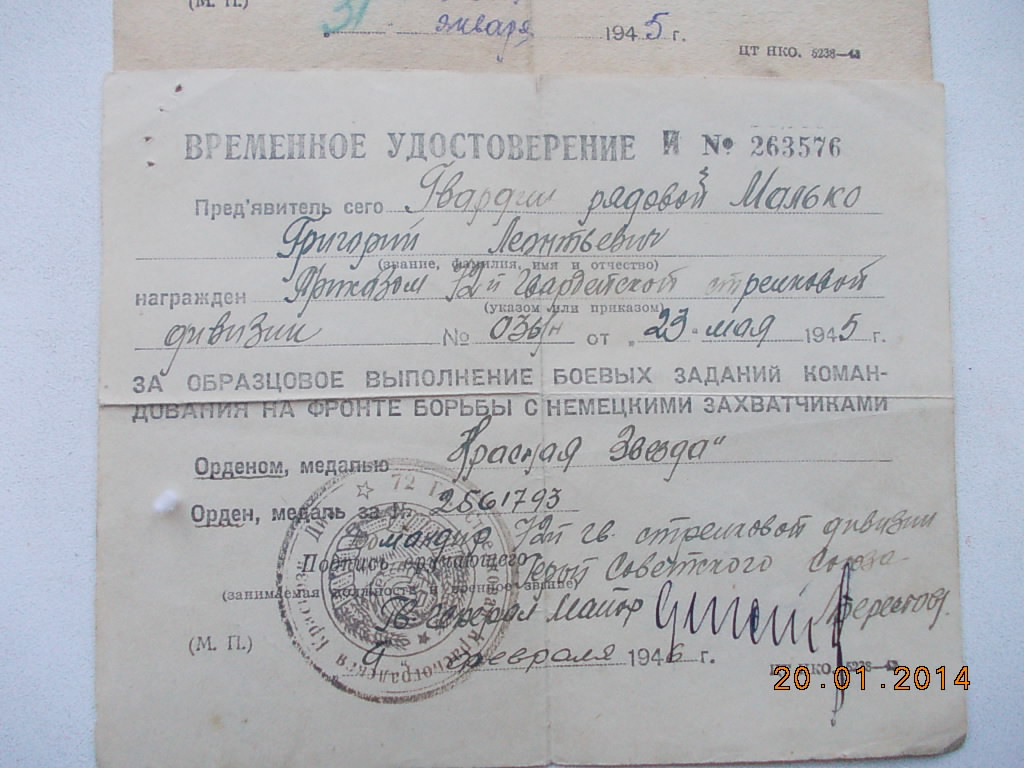 (М. П.)
31 января 1945 г.
ЦТ НКО. 5238—43
ВРЕМЕННОЕ УДОСТОВЕРЕНИЕ И № 263576
Пред'явитель сего Гвардии рядовой Малько
Григорий Леонтьевич
(звание, фамилия, имя и отчество)
награжден Приказом 72й Гвардейской стрелковой
(указом или приказом)
дивизии № 036/н от „23 мая 1945 г.
ЗА ОБРАЗЦОВОЕ ВЫПОЛНЕНИЕ БОЕВЫХ ЗАДАНИЙ КОМАН-
ДОВАНИЯ НА ФРОНТЕ БОРЬБЫ С НЕМЕЦКИМИ ЗАХВАТЧИКАМИ
Орденом, медалью Красная Звезда"
Орден, медаль за № 2561793
Командир 72й гв. стрелковой дивизии
Подпись вручающего Герой Советского Союза
(занимаемая должность и военное звание)
Гв. генерал майор
(М. П.)
9 февраля 1946 г.
ЦТ НКО. 5238—43
20.01.2014